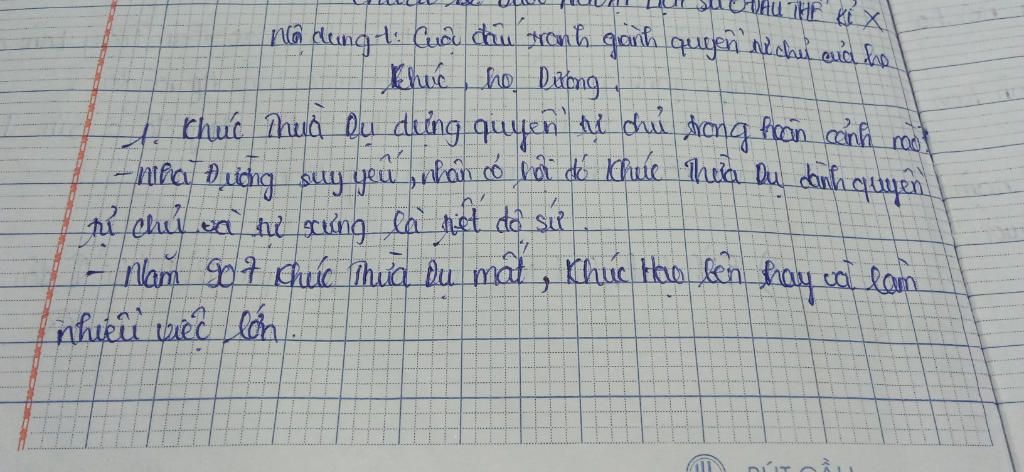 LỊCH SỬ ĐẦU THẾ KỈ X
nội dung 1: Cuộc đấu tranh giành quyền tự chủ của họ
Khúc, họ Dương.
1. Khúc Thừa Dụ dựng quyền tự chủ trong hoàn cảnh nào?
- nhà Đường suy yếu, nhân cơ hội đó Khúc Thừa Dụ dành quyền
tự chủ và tự xưng là tiết độ sứ.
- Năm 907 Khúc Thừa Dụ mất, Khúc Hạo lên thay và làm
nhiều việc lớn.
BÚT